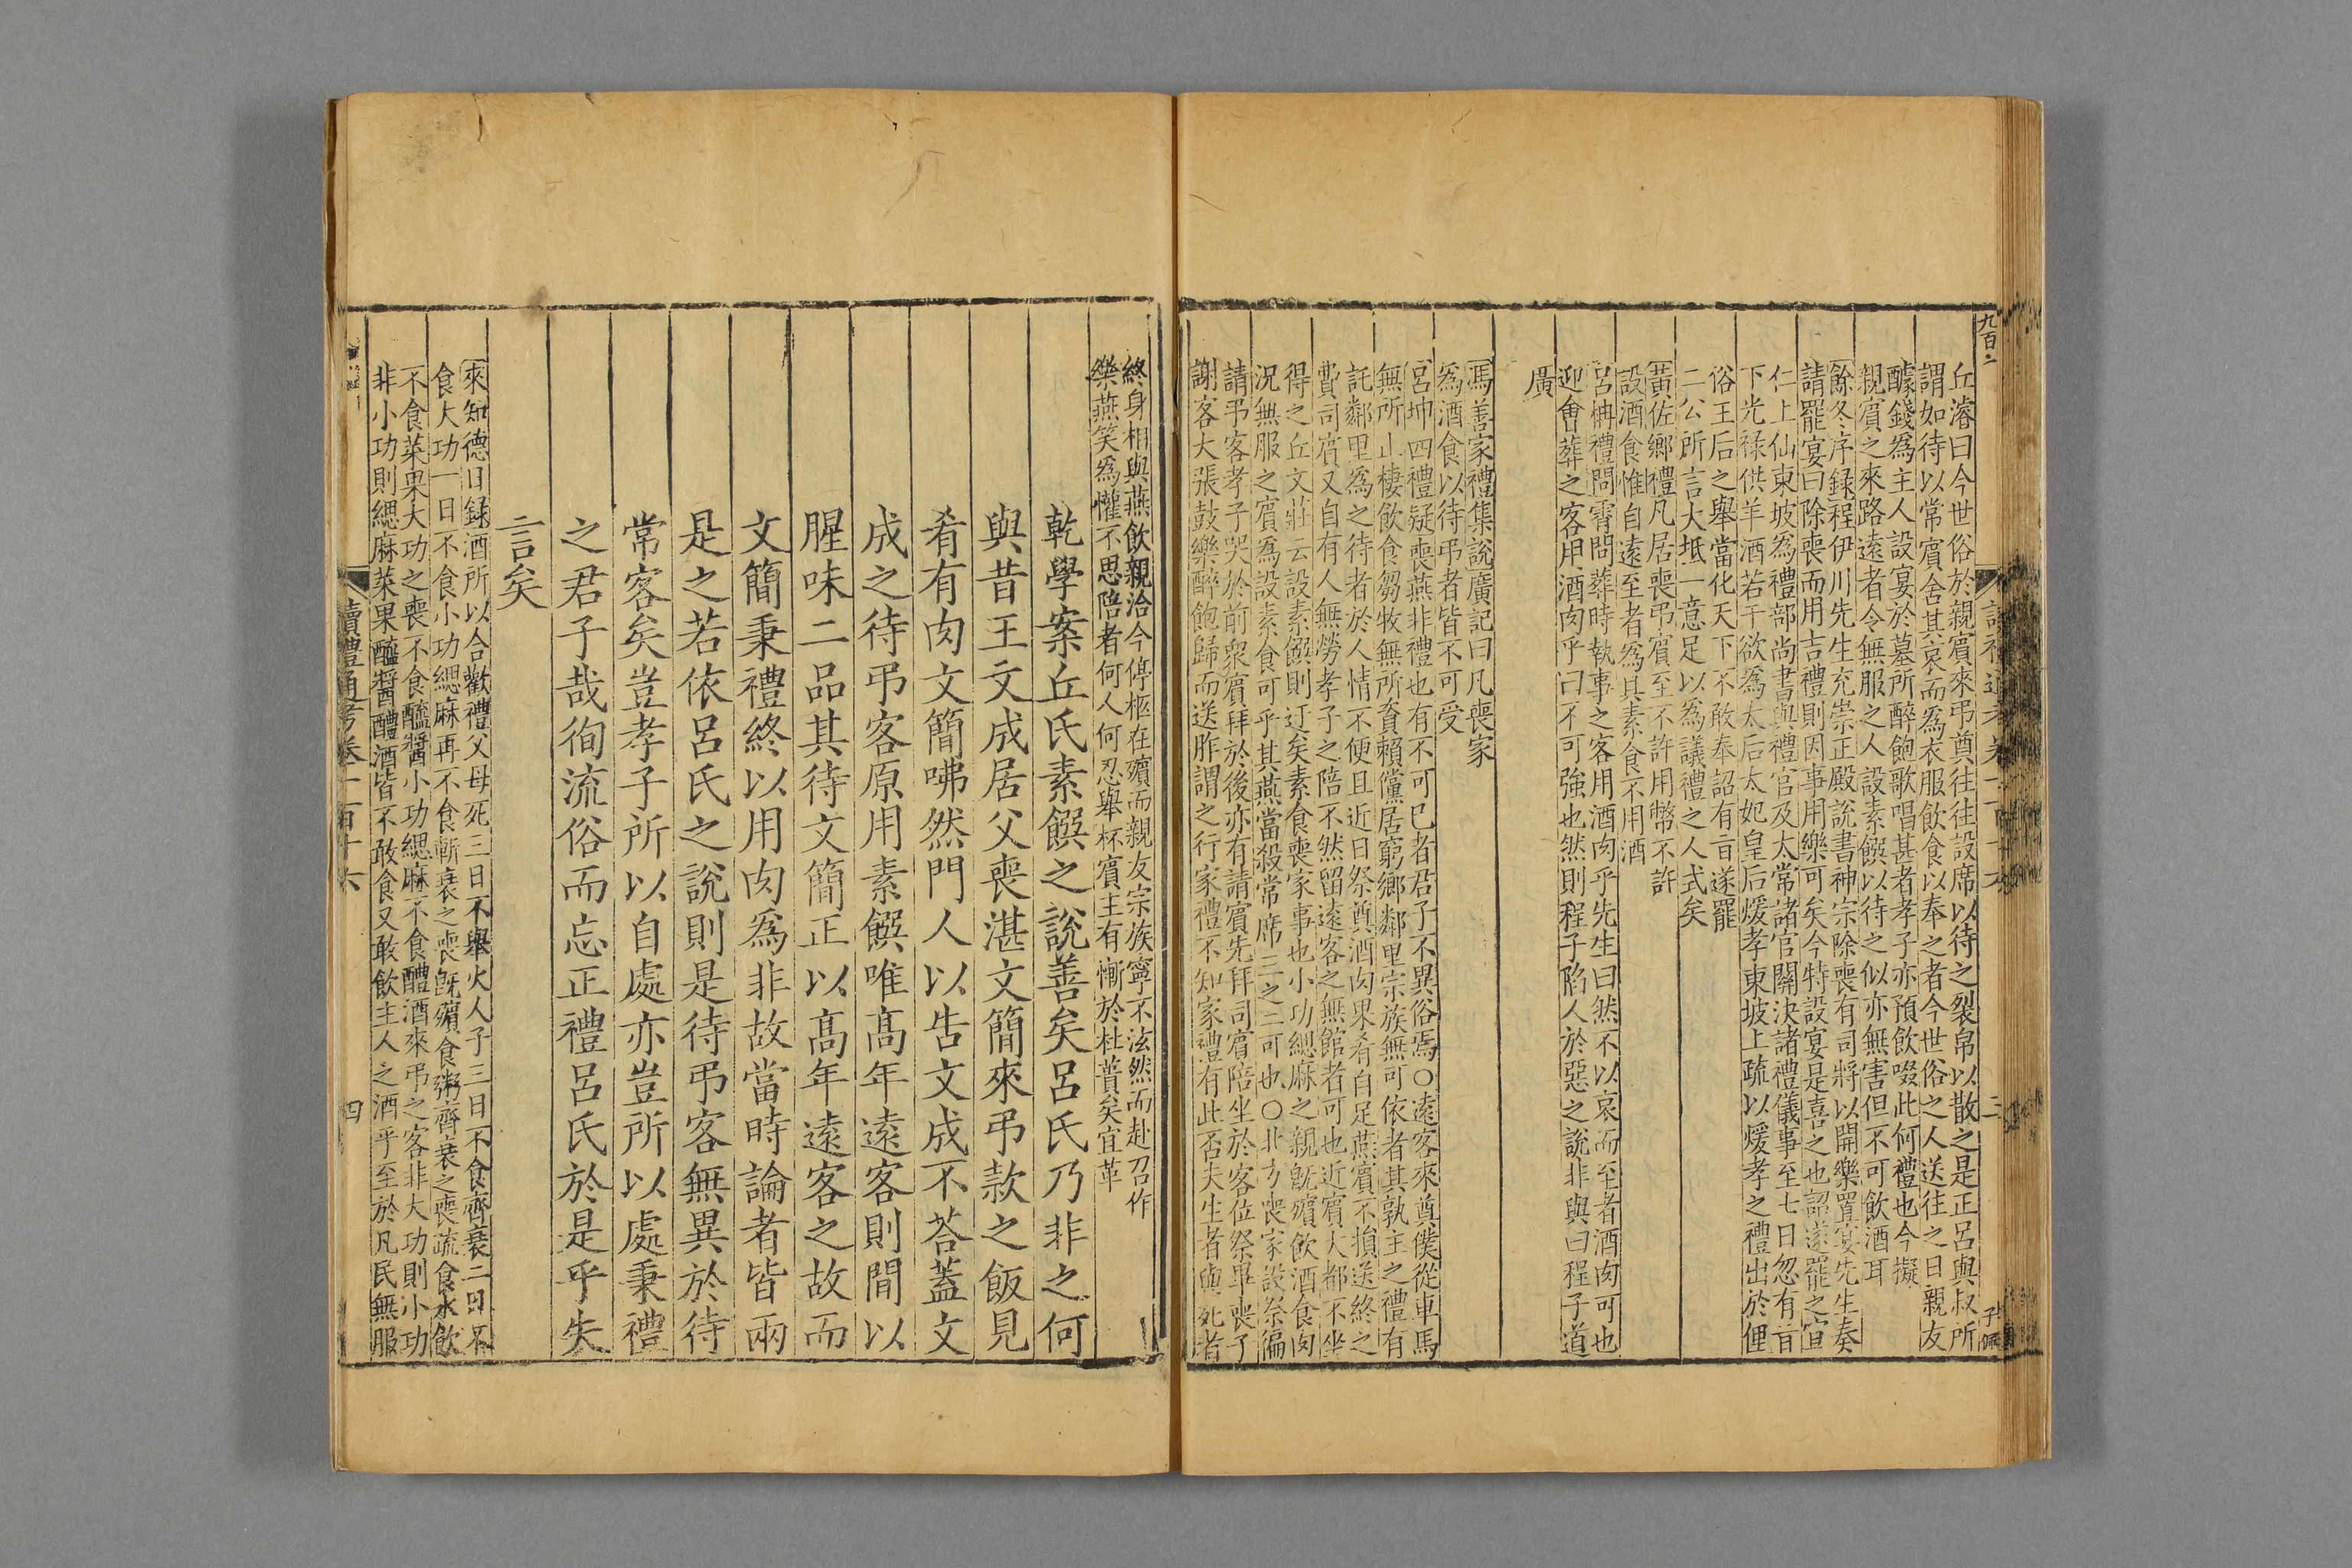 九百六
丘濬曰今世俗於親賓來弔奠往往設席以待之裂帛以散之是正呂與叔所
謂如待以常賓舍其哀而為衣服飲食以奉之者今世俗之人送往之日親友
醵錢為主人設宴於墓所醉飽歌唱甚者孝子亦預飲啜此何禮也今擬
親賓之來路遠者令無服之人設素饌以待之似亦無害但不可飲酒耳
餘冬序録程伊川先生充崇正殿說書神宗除喪有司將以開樂置宴先生奏
請罷宴曰除喪而用吉禮則因事用樂可矣今特設宴是喜之也詔遂罷之宣
仁上仙東坡為禮部尚書與禮官及太常諸官關決諸禮儀事至七日忽有旨
下光禄供羊酒若干欲為太后太妃皇后煖孝東坡上疏以煖孝之禮出於俚
俗王后之舉當化天下不敢奉詔有旨遂罷
二公所言大抵一意足以為議禮之人式矣
黃佐鄉禮凡居喪弔賓至不許用幣不許
設酒食惟自遠至者為具素食不用酒
呂柟禮問霄問葬時執事之客用酒肉乎先生曰然不以哀而至者酒肉可也
迎會葬之客用酒肉乎曰不可強也然則程子陷人於惡之說非與曰程子道
廣
馮善家禮集說廣記曰凡喪家
為酒食以待弔者皆不可受
呂坤四禮疑喪燕非禮也有不可已者君子不異俗焉○遠客來奠僕從車馬
無所止棲飲食芻牧無所資賴儻居窮鄉鄰里宗族無可依者其孰主之禮有
託鄰里為之待者於人情不便且近日祭奠酒肉果肴自足燕賓不損送終之
費司賓又自有人無勞孝子之陪不然留遠客之無館者可也近賓大都不坐
得之丘文莊云設素饌則迂矣素食喪家事也小功緦麻之親旣殯飲酒食肉
況無服之賓為設素食可乎其燕當殺常席三之二可也○北方喪家設祭徧
請弔客孝子哭於前衆賓拜於後亦有請賓先拜司賓陪坐於客位祭畢喪子
謝客大張鼓樂醉飽歸而送胙謂之行家禮不知家禮有此否夫生者與死者
終身相與燕飲親洽今停柩在殯而親友宗族寧不泫然而赴召作
樂燕笑為懽不思陪者何人何忍舉杯賓主有慚於杜蕢矣宜革
乾學案丘氏素饌之說善矣呂氏乃非之何
與昔王文成居父喪湛文簡來弔款之飯見
肴有肉文簡咈然門人以告文成不荅蓋文
成之待弔客原用素饌唯高年遠客則間以
腥味二品其待文簡正以高年遠客之故而
文簡秉禮終以用肉為非故當時論者皆兩
是之若依呂氏之說則是待弔客無異於待
常客矣豈孝子所以自處亦豈所以處秉禮
之君子哉徇流俗而忘正禮呂氏於是乎失
言矣
來知德日録酒所以合歡禮父母死三日不舉火人子三日不食齊衰二日不
食大功一日不食小功緦麻再不食斬衰之喪旣殯食粥齊衰之喪疏食水飲
不食菜果大功之喪不食醯醬小功緦麻不食醴酒來弔之客非大功則小功
非小功則緦麻菜果醯醬醴酒皆不敢食又敢飲主人之酒乎至於凡民無服
讀禮通考卷一百十六
四